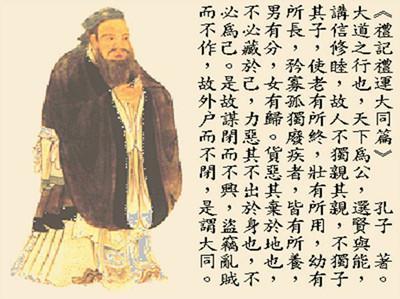 《禮記禮運大同篇》 孔子 著。
大道之行也，天下為公，選賢與能，
講信修睦，故人不獨親其親，不獨子
其子，使老有所終，壯有所用，幼有
所長，矜寡孤獨廢疾者，皆有所養，
男有分，女有歸。貨惡其棄於地也，
不必藏於己，力惡其不出於身也，不
必為己。是故謀閉而不興，盜竊亂賊
而不作，故外戶而不閉，是謂大同。